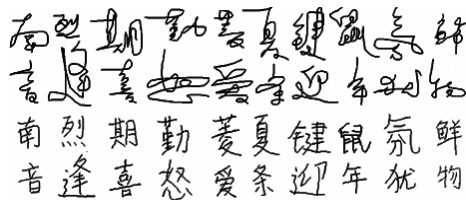 南烈期勤菱夏键鼠氛鲜
音逢喜怒爱条迎年犹物
南烈期勤菱夏键鼠氛鲜
音逢喜怒爱条迎年犹物